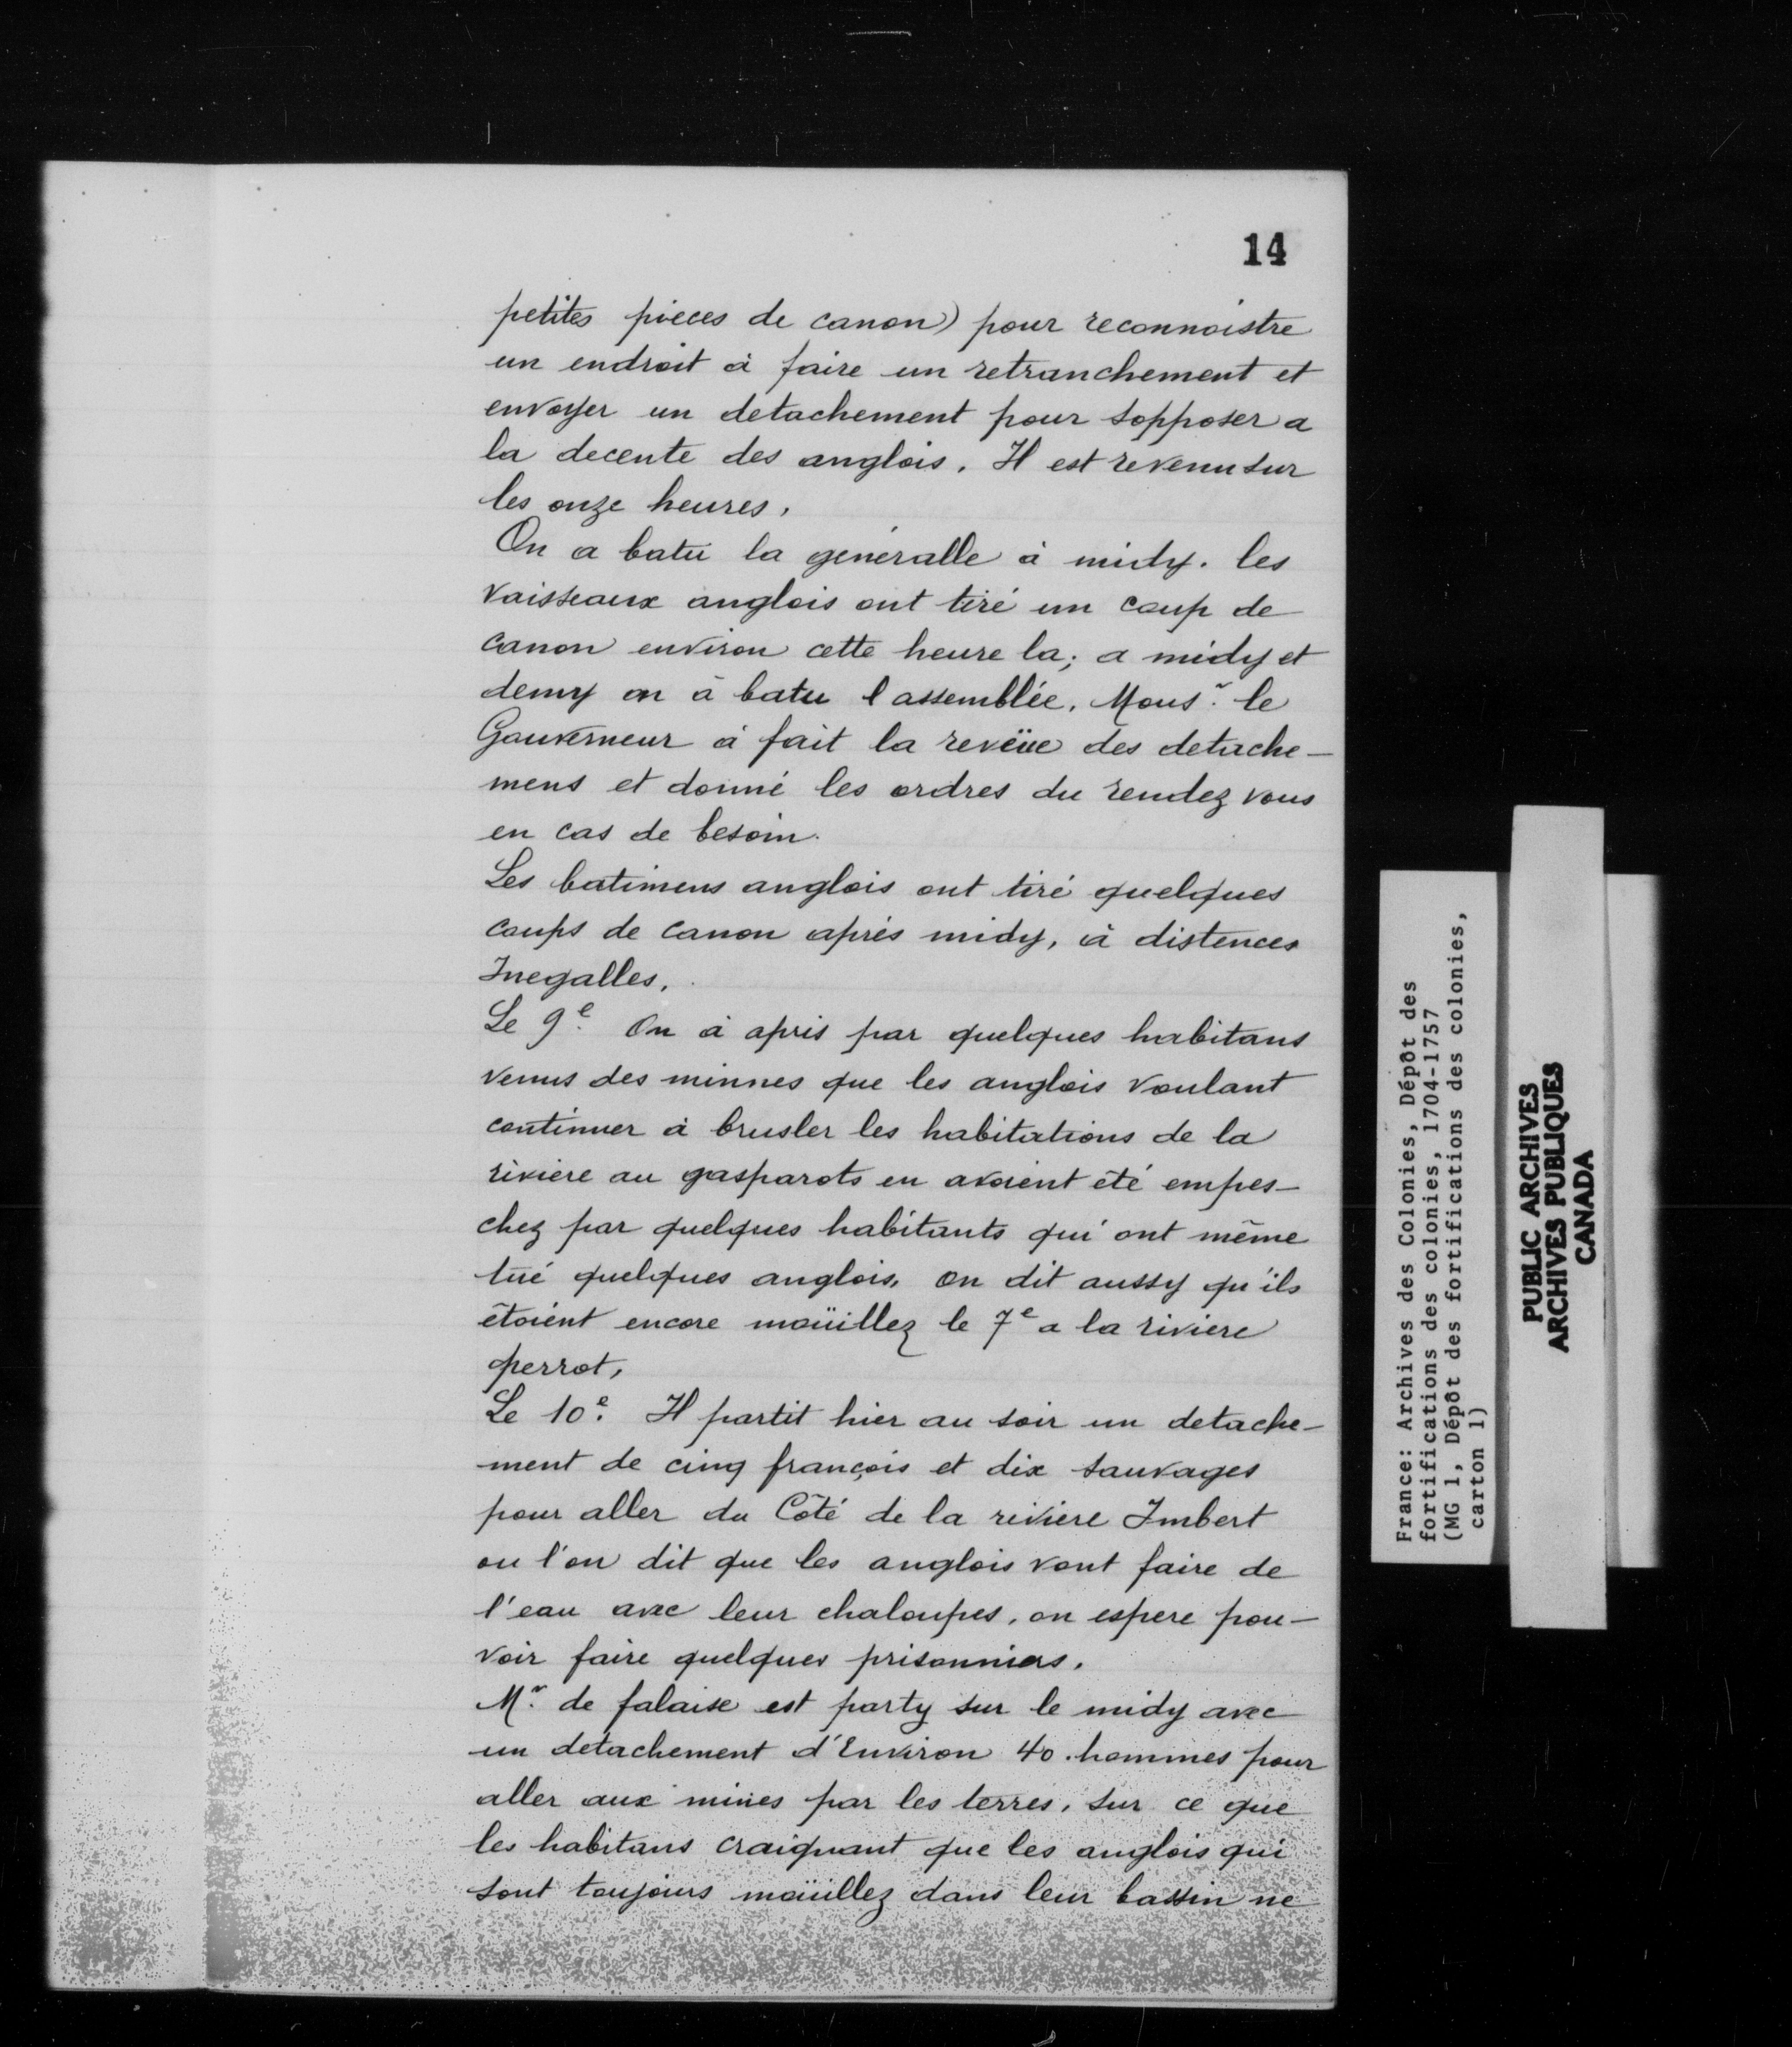 14
petites pieces de canon) pour reconnoistre
un endroit à faire un retranchement et
envoyer un detachement pour sopposer a
la decente des anglois. Il est revenu sur
les onze heures.
On a batü la géneralle à midy. les
vaisseaux anglois ont tiré un coup de
canon environ cette heure la; a midy et
demy on à batu l assemblée. Monsr. le
Gouverneur à fait la reveüe des detache-
mens et donné les ordres du rendez vous
en cas de besoin.
Les batimens anglois ont tiré quelques
coups de canon aprés midy, à distences
Inegalles.
Le 9e. On à apris par quelques habitans
venus des minnes que les anglois voulant
continuer à brusler les habitations de la
riviere au gasparots en avoient été empes-
chez par quelques habitants qui ont même
tüé quelques anglois. on dit aussy qu'ils
étoient encore moüillez le 7e a la riviere
perrot,
Le 10e. Il partit hier au soir un detache-
ment de cinq françois et dix sauvages
pour aller du Côté de la riviere Imbert
ou l'on dit que les anglois vont faire de
l'eau avec leur chaloupes, on espere pou-
voir faire quelques prisonniers.
Mr. de falaise est party sur le midy avec
un détachement d'Environ 40. hommes pour
aller aux mines par les terres, sur ce que
les habitans craignant que les anglois qui
sont toujours moüillez dans leur bassin ne
France: Archives des Colonies, Dépôt des
fortifications des colonies, 1704-1757
(MG 1, Dépôt des fortifications des colonies,
carton 1)
PUBLIC ARCHIVES
ARCHIVES PUBLIQUES
CANADA